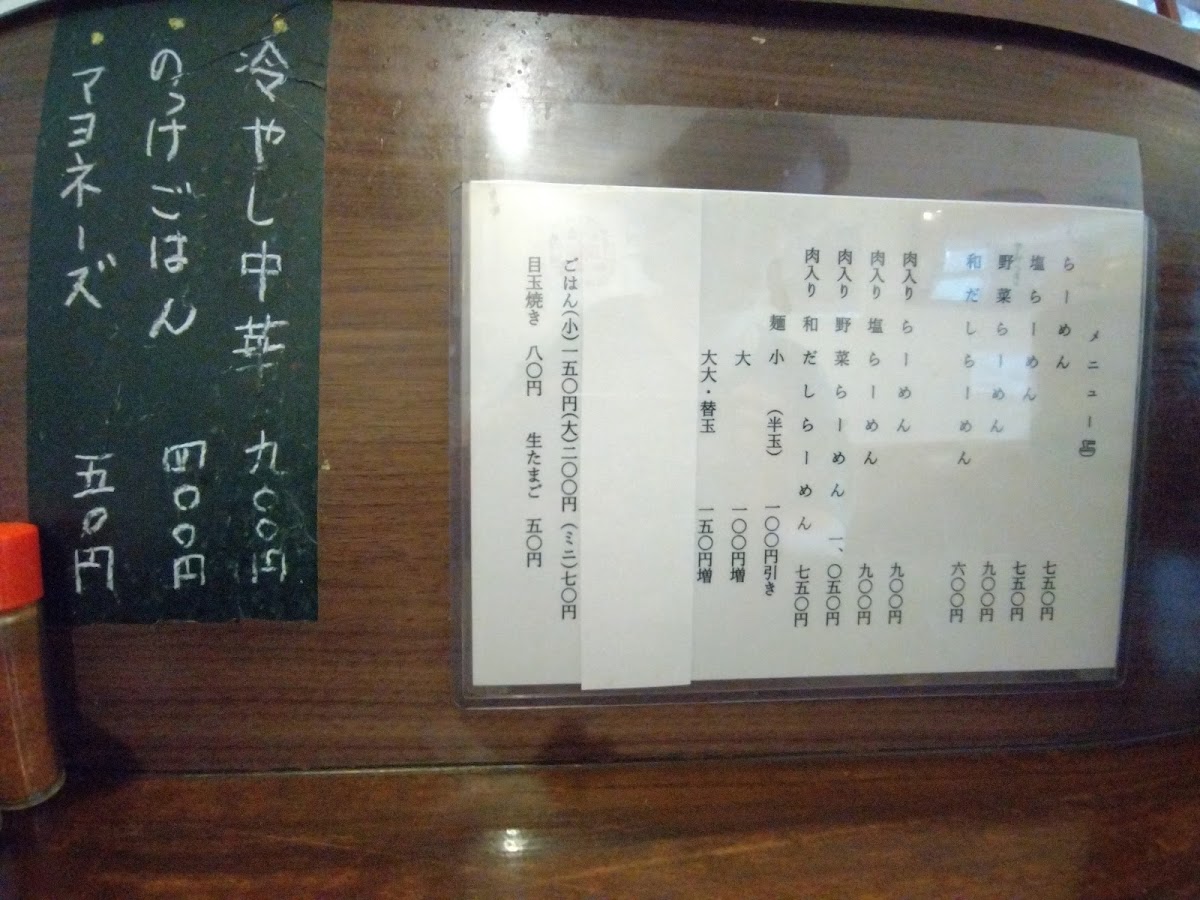 メニュー
らーめん 七五〇円
塩らーめん 七五〇円
野菜らーめん 九〇〇円
和だしらーめん 六〇〇円
肉入り らーめん 九〇〇円
肉入り 塩らーめん 九〇〇円
肉入り 野菜らーめん 一、〇五〇円
肉入り 和だしらーめん 七五〇円
麺 小 (半玉) 一〇〇円引き
大 一〇〇円増
大大・替玉 一五〇円増
ごはん(小)一五〇円(大)二〇〇円 (ミニ)七〇円
目玉焼き 八〇円 生たまご 五〇円
・冷やし中華 九〇〇円
・のっけごはん 四〇〇円
・マヨネーズ 五〇円